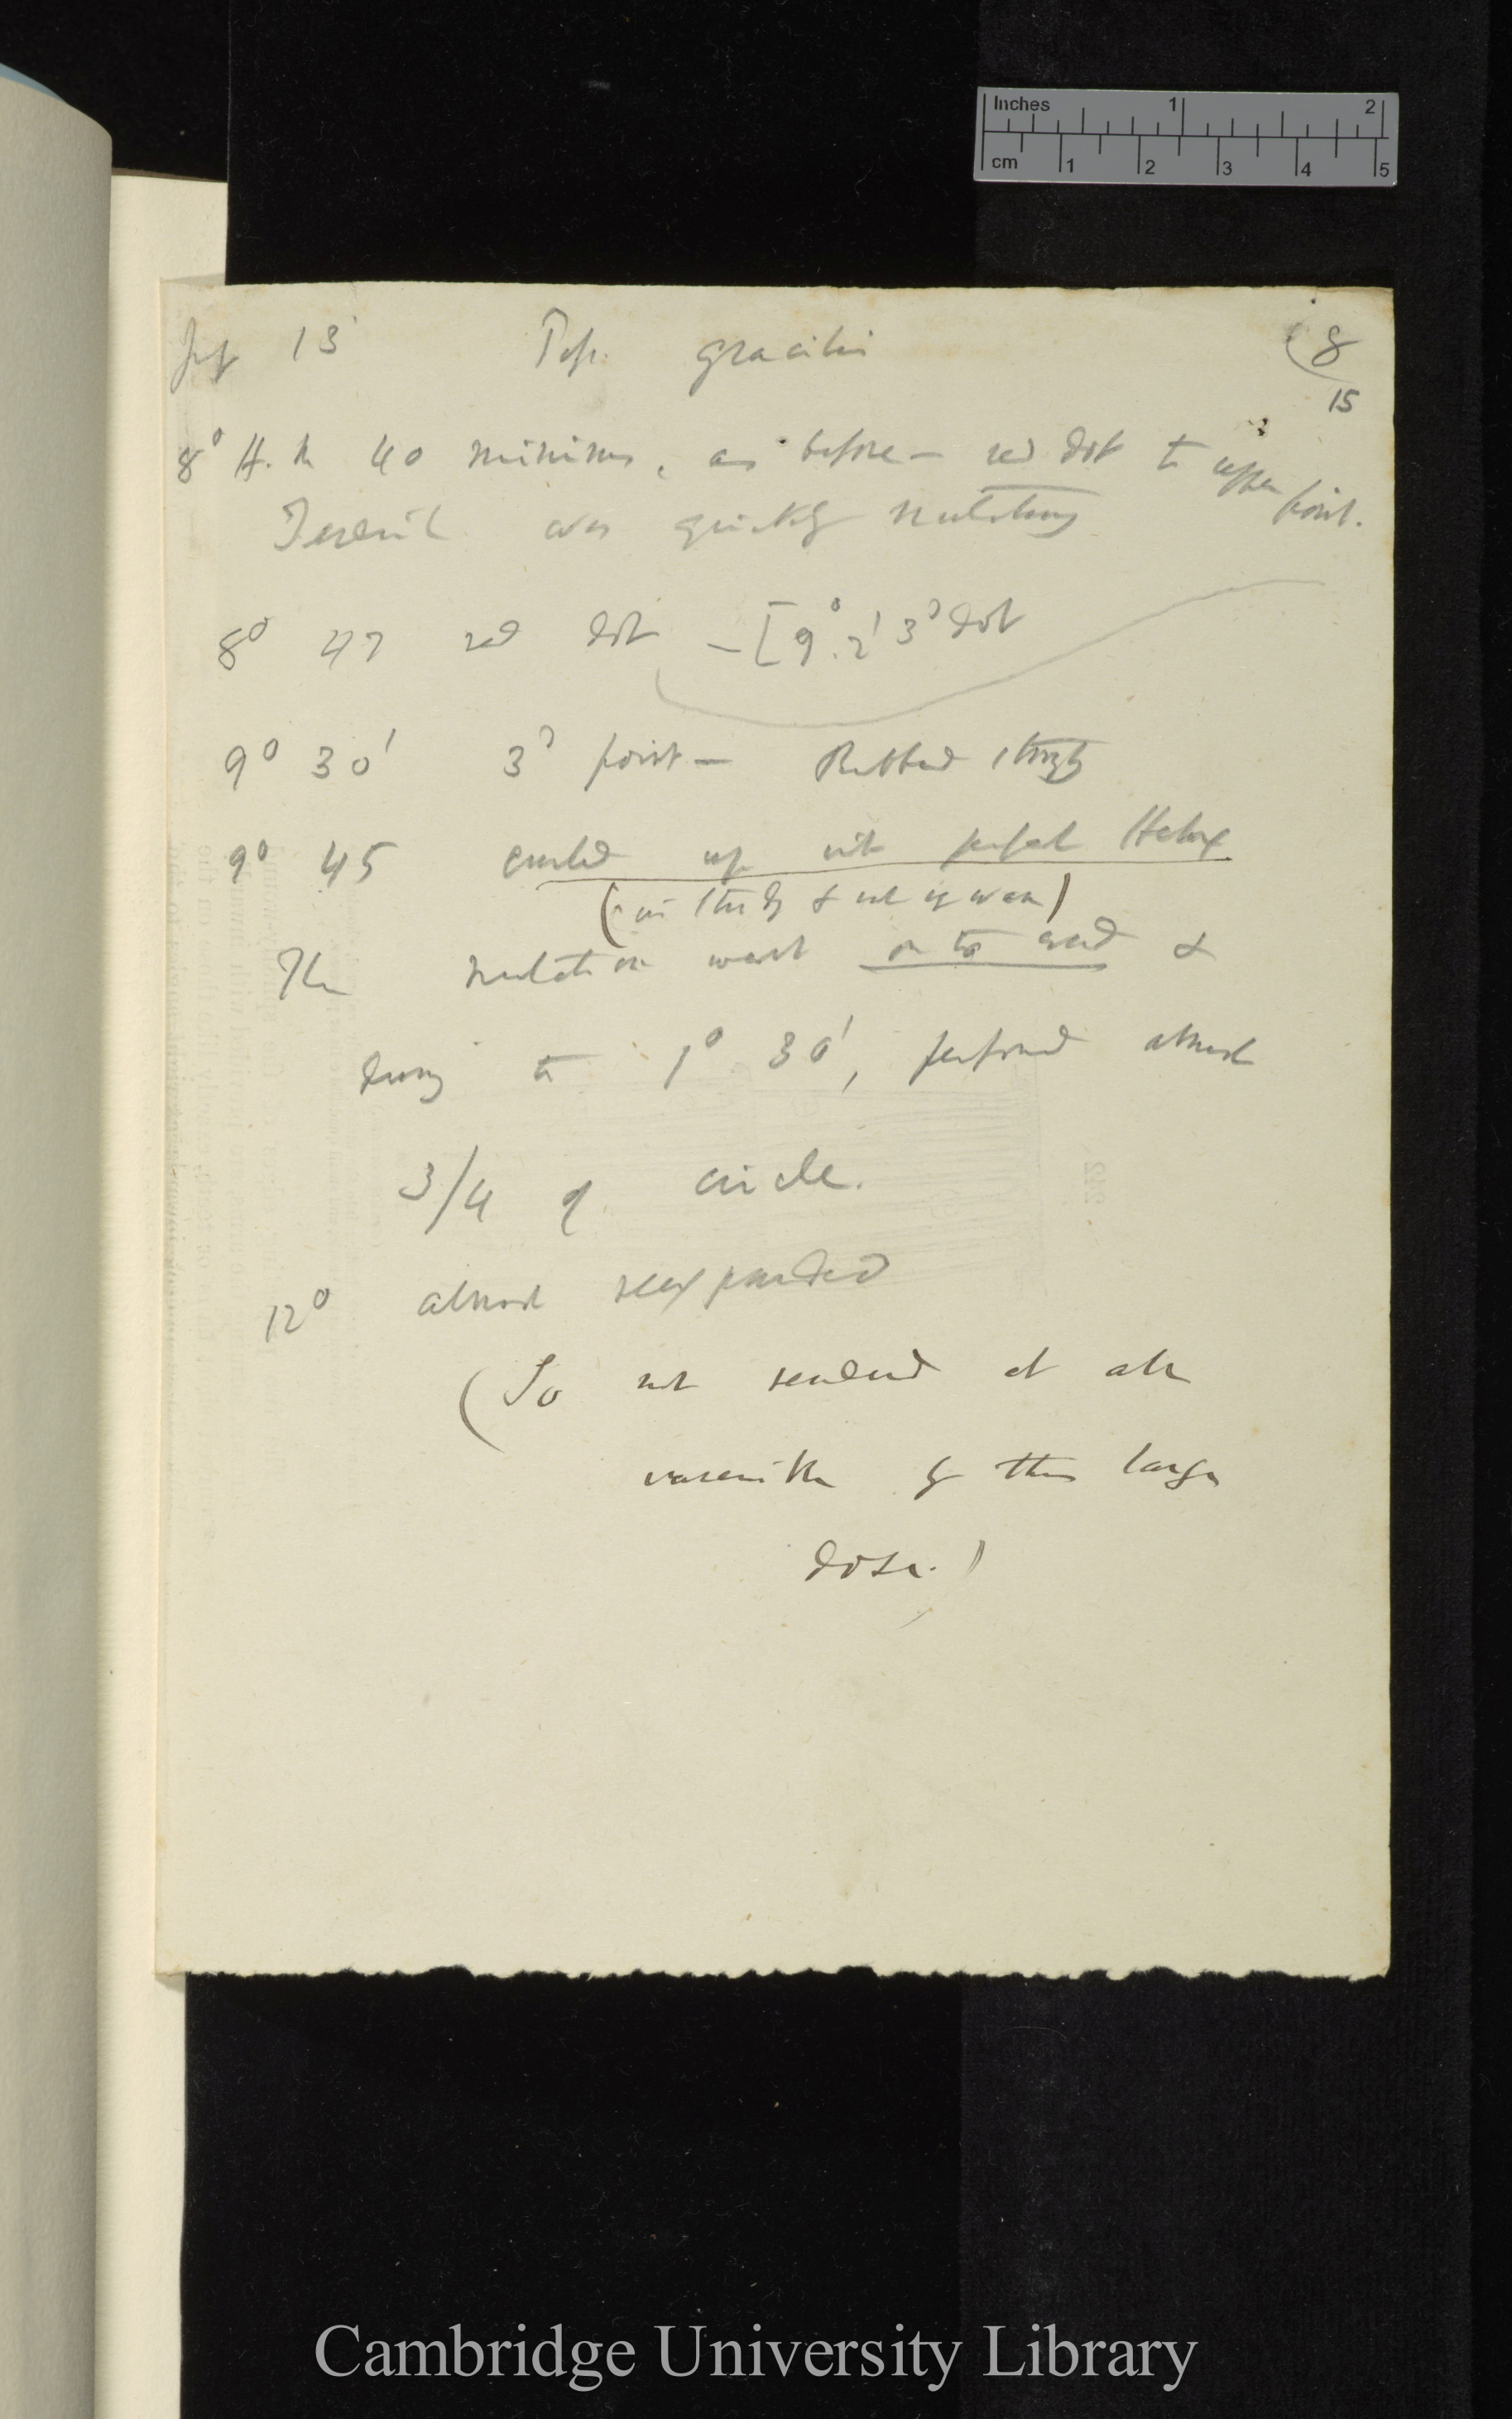 Inches 1 2
cm 1 2 3 4 5
13 Pass. gracilis (8
15
8° H. in 40 minims, as before — red dot to upper point.
Tendril was quickly nutating
8° 47 red dot — [9°. 2' 3d dot
9° 30' 3d point — Rubbed strongly
9° 45 curled up into perfect Helix
The nutation went on to end &
during to 1° 30', performed almost
3/4 of circle.
12° almost reexpanded
(So not rendered at all
insensible by this large
dose.)
Cambridge University Library